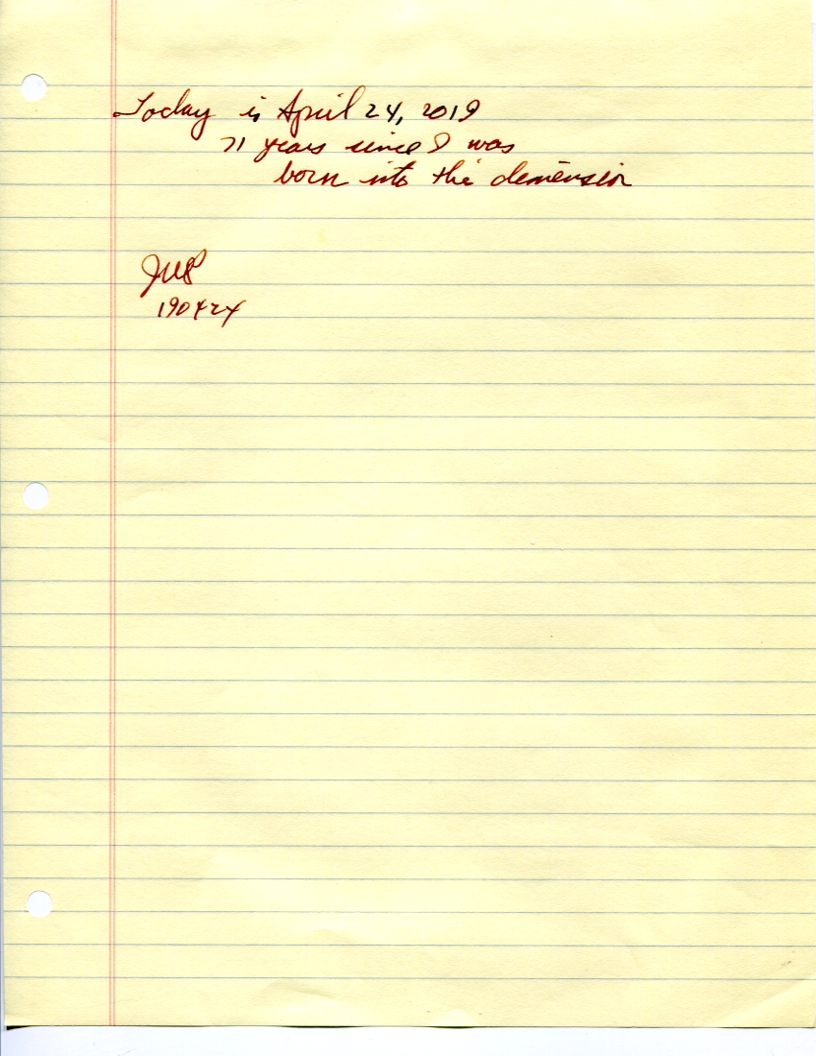 Today is April 24, 2019
71 years since I was
born into this demension
190424